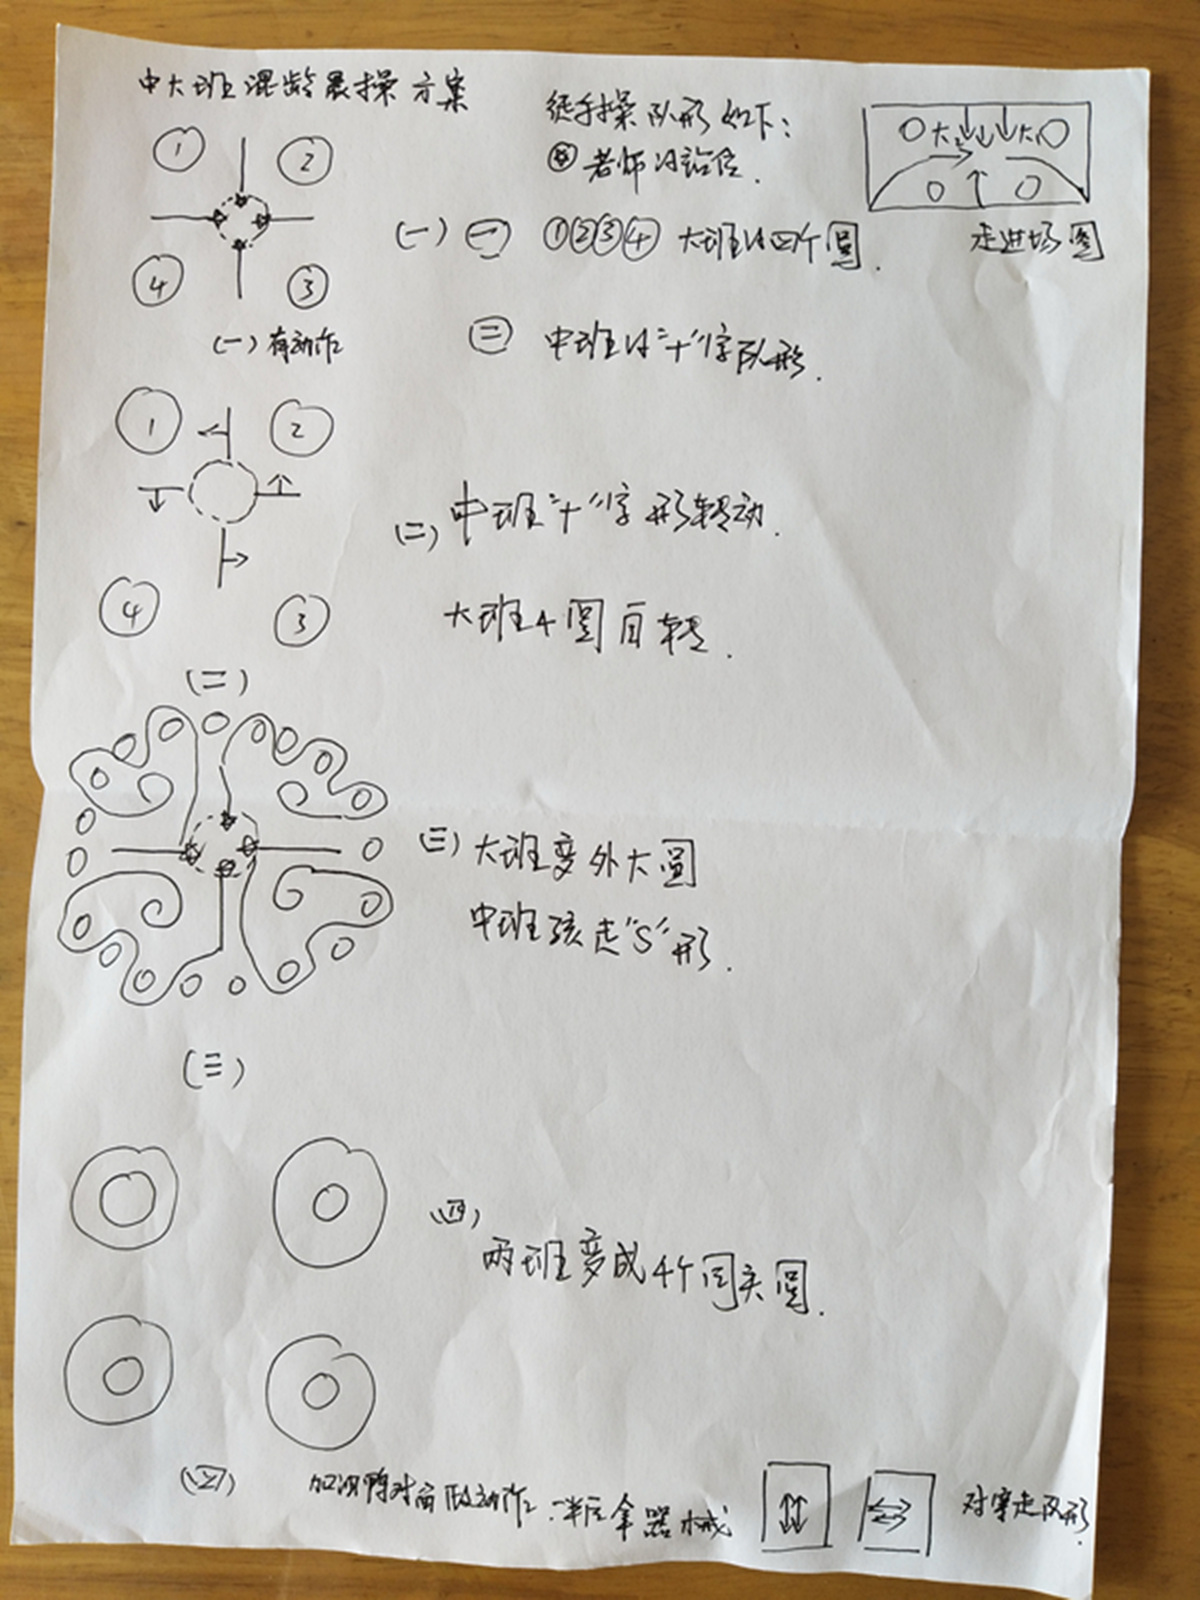 中大班混龄晨操方案
徒手操队形如下：
老师的站位.
大 大
走进场图
① ②
④ ③
(一)有动作
(一) ㊀ ①②③④ 大班的四个圆.
㊁ 中班的"十"字队形.
1 2
4 3
(二)
(二) 中班"十"字形转动.
大班4圆自转.
(三) 大班变外大圆
中班孩走"S"形.
(三)
(四)
两班变成4个同心圆.
(四)
对面做动作 拿器械
对穿走队形.